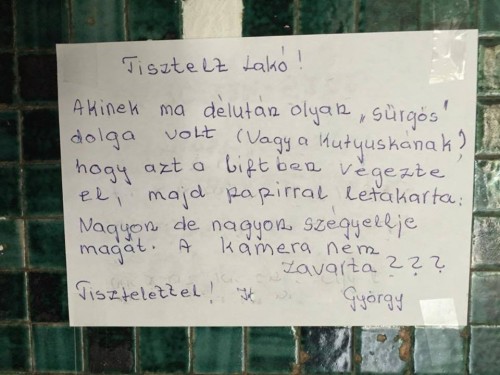 Tisztelz Lakó!
Akinek ma délután olyan „sürgős"
dolga volt (Vagy a kutyuskának)
hogy azt a liftben végezte
el, majd papirral letakarta.
Nagyon de nagyon szégyellje
magát. A kamera nem
zavarta ???
Tisztelettel! György